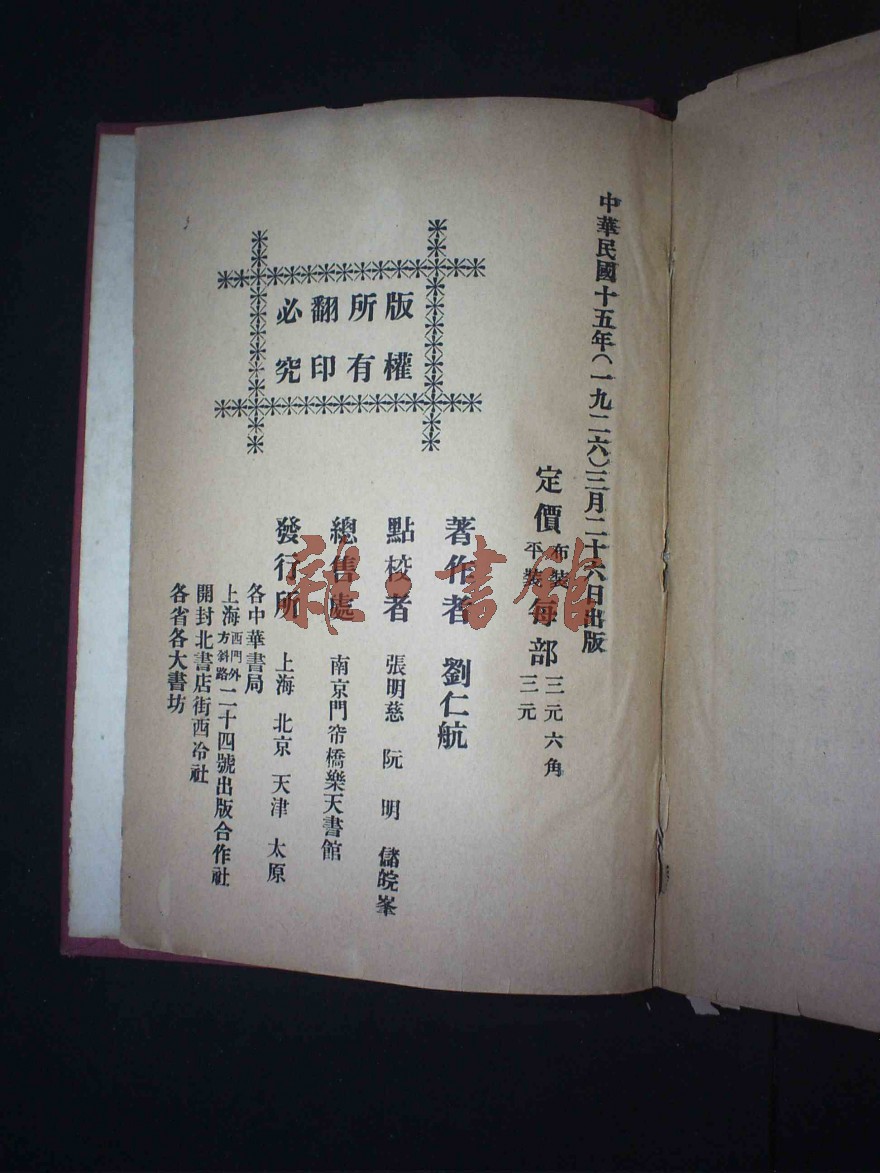 中華民國十五年（一九二六）三月二十六日出版
定價 布裝 平裝 每部 三元六角 三元
著作者 劉仁航
點校者 張明慈 阮明 儲皖峯
總售處 南京門帘橋樂天書館
發行所 上海 北京 天津 太原
各中華書局
上海西門外方斜路二十四號出版合作社
開封北書店街西冷社
各省各大書坊
版權
所有
翻印
必究
雜·書館